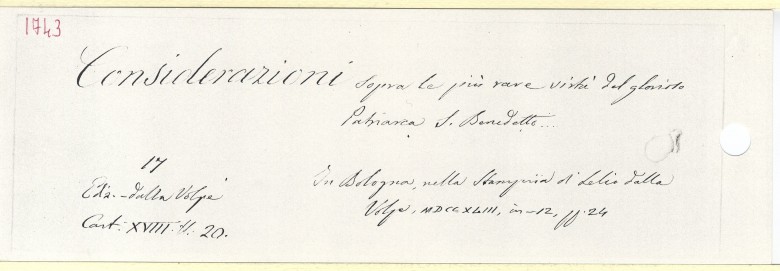 1743
Considerazioni sopra le più rare virtù del glorioso
Patriarca S. Benedetto...
17
Ediz. dalla Volpe
Cart. XVIII. N. 20.
In Bologna, nella Stamperia di Lelio dalla
Volpe, MDCCXLIII, in-12, pp. 24